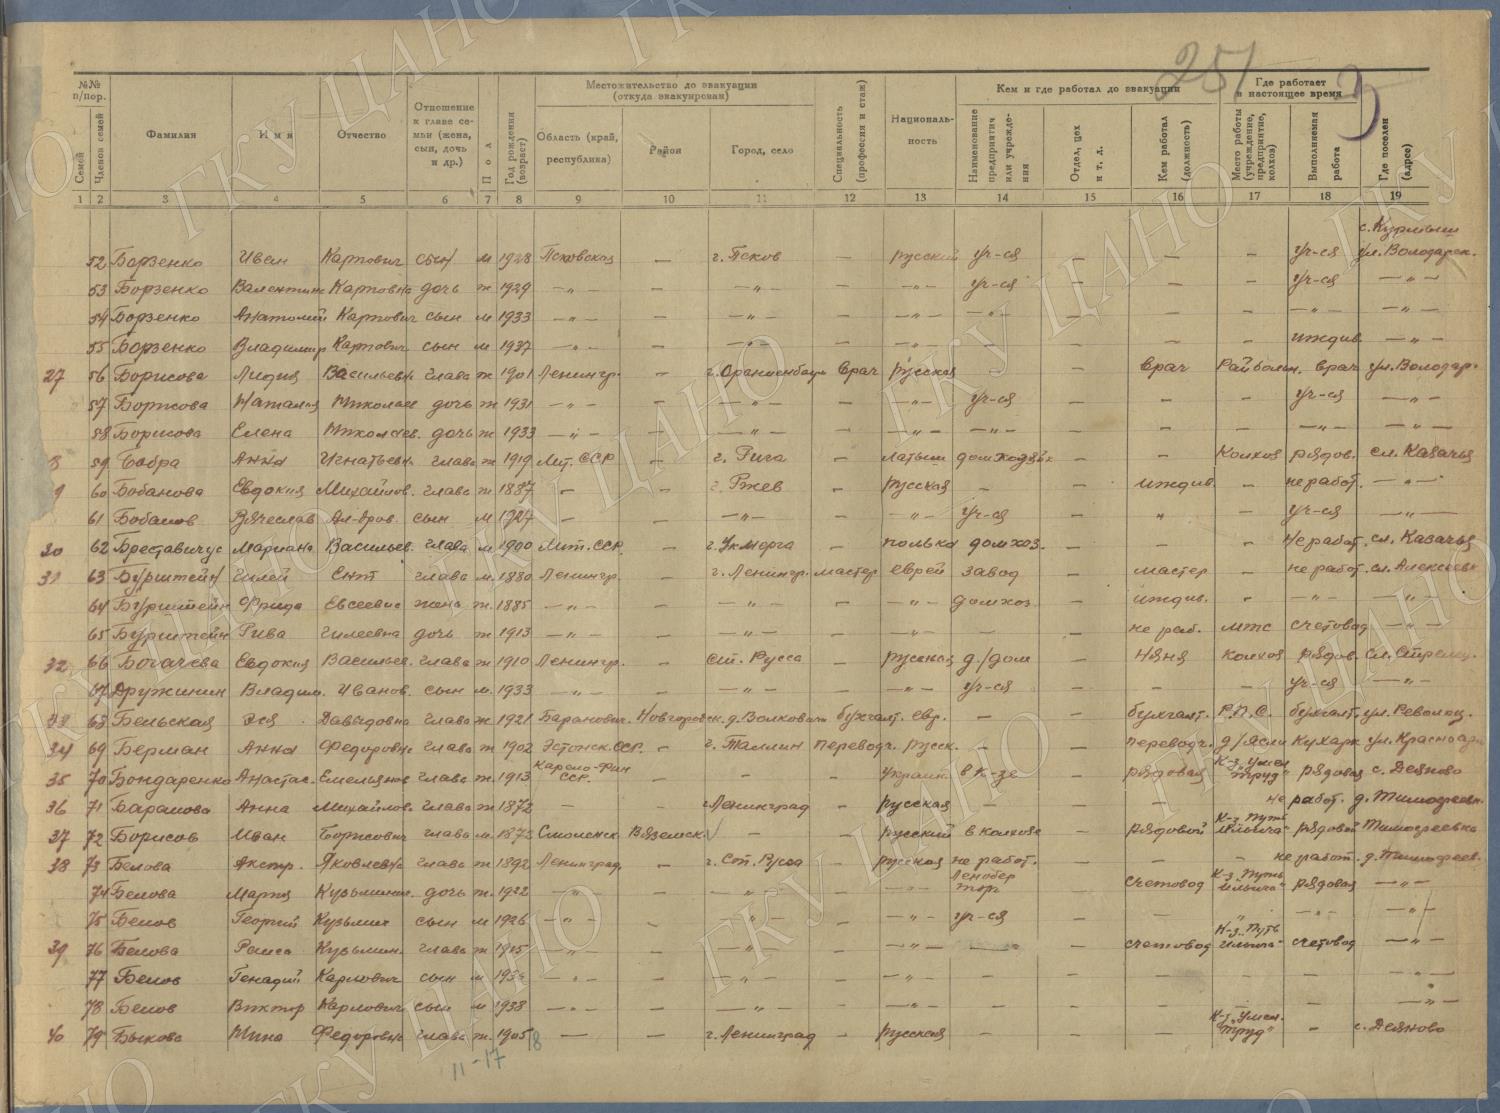 251
3
№№ п/пор.
Семей
Членов семей
Фамилия
Имя
Отчество
Отношение к главе семьи (жена, сын, дочь и др.)
Пол
Год рождения (возраст)
Местожительство до эвакуации (откуда эвакуирован)
Область (край, республика)
Район
Город, село
Специальность (профессия и стаж)
Националь-ность
Кем и где работал до эвакуации
Наименование предприятия или учрежде-ния
Отдел, цех и т. д.
Кем работал (должность)
Где работает в настоящее время
Место работы (учреждение, предприятие, колхоз)
Выполняемая работа
Где поселен (адрес)
1 2 3 4 5 6 7 8 9 10 11 12 13 14 15 16 17 18 19
с. Курмыш
52 Борзенко Иван Карпович сын м 1928 Псковская — г. Псков — русский уч-ся — — — уч-ся ул. Володарск.
53 Борзенко Валентина Карповна дочь ж 1929 —"— — —"— — —"— уч-ся — — — уч-ся —"—
54 Борзенко Анатолий Карпович сын м 1933 —"— — —"— — —"— —"— — — — —"— —"—
55 Борзенко Владимир Карпович сын м 1937 —"— — —"— — —"— — — — — иждив. —"—
27 56 Борисова Лидия Васильевн. глава ж 1901 Ленингр. — г. Ораниенбаум врач русская — — врач Райбольн. врач ул. Володар.
57 Борисова Наталия Николаев дочь ж 1931 —"— — —"— — —"— уч-ся — — — уч-ся —"—
58 Борисова Елена Николаев. дочь ж 1933 —"— — —"— — —"— —"— — — — —"— —"—
8 59 Бобра Анна Игнатьевн. глава ж 1919 Лит. ССР — г. Рига — латыш домхозяйк — — Колхоз рядов. сл. Казачья
9 60 Бобанова Евдокия Михайлов. глава ж 1887 — — г. Ржев — русская — — иждив. — не работ. —"—
61 Бобанов Вячеслав Ал-дров. сын м 1927 — — —"— — —"— уч-ся — " — уч-ся —"—
30 62 Бреставичус Мариана Васильев. глава м 1900 Лит. ССР. — г. Укмерга — полька домхоз. — — — не работ. сл. Казачья
31 63 Бурштейн Гилей глава м. 1880 Ленингр. — г. Ленингр. мастер еврей завод — мастер — не работ. сл. Алексеевк
64 Бурштейн Фрида Евсеевна жена ж. 1885 —"— — —"— — —"— домхоз. — иждив. — —"— —"—
65 Бурштейн Рива Гилеевна дочь ж 1913 —"— — —"— — —"— — — не раб. МТС счетовод —"—
32 66 Богачева Евдокия Васильев. глава ж 1910 Ленингр. — Ст. Русса — русская д/дом — няня колхоз рядов. сл. Стрелец.
67 Дружинин Владим. Иванов. сын м. 1933 —"— — —"— — —"— уч-ся — — — уч-ся —"—
33 68 Бельская Эся Давыдовна глава ж 1921 Баранович. Новгородск. д. Волковичи бухгалт. евр. — — бухгалт. Р.П.С. бухгалт. ул. Револоц.
34 69 Берман Анна Федоровн. глава ж 1902 Эстонск. ССР. — г. Таллин переводч. русск. — — переводч. д/ясли Кухарк ул. Красноарм
35 70 Бондаренко Анастас. Емельянов глава ж 1913 Карело-Фин ССР. — — — украин в к-зе — рядовая К-з „Умел. труд" рядовая с. Деяново
36 71 Баранова Анна Михайлов. глава ж 1872 — — г. Ленинград — русская — — — не работ. д. Тимофеевк.
37 72 Борисов Иван Борисович глава м. 1872 Смоленск Вяземск. — — русский в колхозе — рядовой К-з „Путь Ильича" рядовой Тимофеевка
38 73 Белова Алестр. Яковлевна глава ж 1892 Ленинград. — г. Ст. Русса — русская не работ. — — — не работ. д. Тимофеев.
74 Белова Мария Кузьминич. дочь ж. 1922 —"— — —"— — —"— Ленобер торг — счетовод К-з „Путь Ильича" рядовая —"—
75 Белов Георгий Кузьмич сын м 1926 —"— — —"— — —"— уч-ся — — " —"— —"—
39 76 Белова Раиса Кузьмин. глава ж 1915 —"— — —"— — —"— —"— — счетовод К-з „Путь Ильича" счетовод —"—
77 Белов Генадий Карлович сын м 193 —"— — —"— — —"— — — — — — —"—
78 Белов Виктор Карлович сын м 1938 —"— — —"— — —"— — — — — — —"—
40 79 Быкова Нина Федоровна глава ж. 1905 — — г. Ленинград — русская — — — К-з „Умел. труд" — с. Деяново
8
11-17
ГКУ ЦАНО